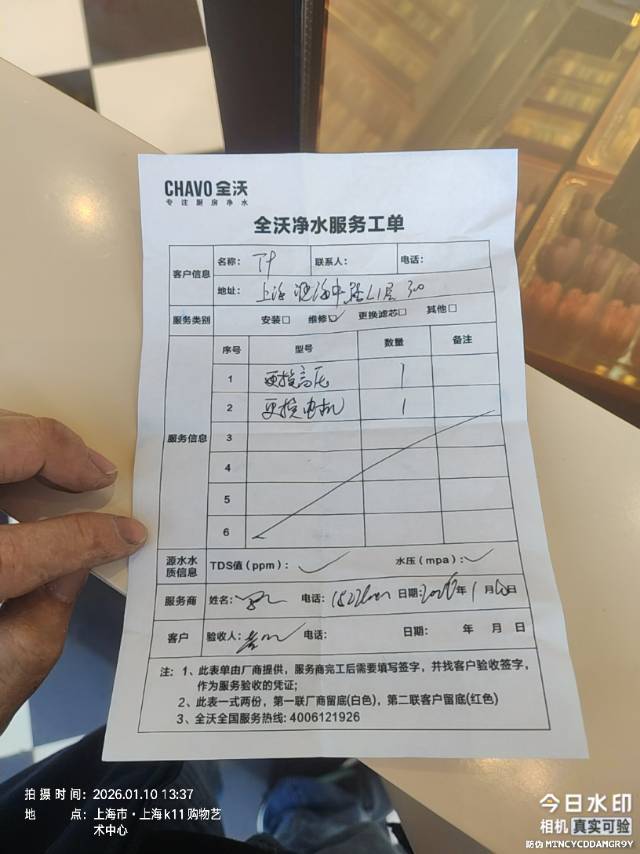 CHAVO 全沃
专注厨房净水
全沃净水服务工单
客户信息 名称： 联系人： 电话：
地址：上海 淮海中路L1层 300
服务类别 安装□ 维修☑ 更换滤芯□ 其他□
服务信息 序号 型号 数量 备注
1 更换高压 1
2 更换电机 1
3
4
5
6
源水水质信息 TDS值（ppm）：✓ 水压（mpa）：✓
服务商 姓名： 电话： 日期：2026年1月10日
客户 验收人： 电话： 日期： 年 月 日
注：1、此表单由厂商提供，服务商完工后需要填写签字，并找客户验收签字，
作为服务验收的凭证；
2、此表一式两份，第一联厂商留底(白色)，第二联客户留底(红色)
3、全沃全国服务热线: 4006121926
拍摄时间：2026.01.10 13:37
地 点：上海市·上海k11购物艺
术中心
今日水印
相机 真实可验
防伪 MTNCYCDDAMGR9Y